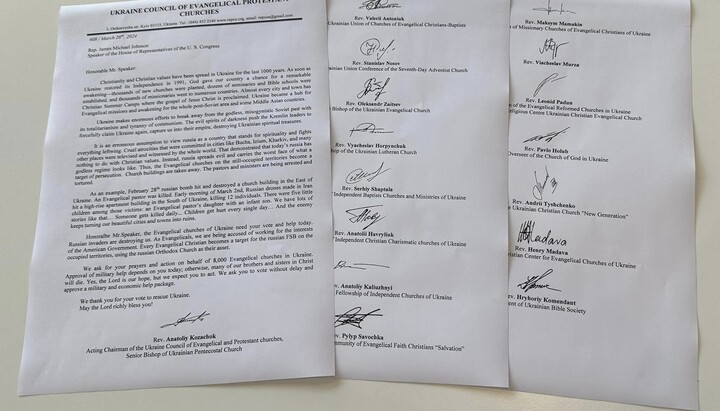 UKRAINE COUNCIL OF EVANGELICAL PROTESTANT
CHURCHES
#08 / March 20th, 2024
Rep. James Michael Johnson
Speaker of the House of Representatives of the U.S. Congress
Honorable Mr. Speaker,
Christianity and Christian values have been spread in Ukraine for the last 1000 years. As soon as
Ukraine restored its Independence in 1991, God gave our country a chance for a remarkable
awakening – thousands of new churches were planted, dozens of seminaries and Bible schools were
established, and thousands of missionaries went to numerous countries. Almost every city and town has
Christian Summer Camps where the gospel of Jesus Christ is proclaimed. Ukraine became a hub for
Evangelical missions and awakening for the whole post-Soviet area and some Middle Asian countries.
Ukraine makes enormous efforts to break away from the godless, misanthropic Soviet past with
its totalitarianism and tyranny of communism. The evil spirits of darkness push the Kremlin leaders to
forcefully claim Ukraine again, capture us into their empire, destroying Ukrainian spiritual treasures.
It is an erroneous assumption to view russia as a country that stands for spirituality and fights
everything leftwing. Cruel atrocities that were committed in cities like Bucha, Izium, Kharkiv, and many
other places were televised and witnessed by the whole world. That demonstrated that today's russia has
nothing to do with Christian values. Instead, russia spreads evil and carries the worst face of what a
godless regime looks like. Thus, the Evangelical churches on the still-occupied territories become a
target of persecution. Church buildings are taken away. The pastors and ministers are being arrested and
tortured.
As an example, February 28th russian bomb hit and destroyed a church building in the East of
Ukraine. An Evangelical pastor was killed. Early morning of March 2nd, Russian drones made in Iran
hit a high-rise apartment building in the South of Ukraine, killing 12 individuals. There were five little
children among those victims: an Evangelical pastor's daughter with an infant son. We have lots of
stories like that... Someone gets killed daily... Children get hurt every single day... And the enemy
keeps turning our beautiful cities and towns into ruins.
Honorable Mr.Speaker, the Evangelical churches of Ukraine need your vote and help today.
Russian invaders are destroying us. As Evangelicals, we are being accused of working for the interests
of the American Government. Every Evangelical Christian becomes a target for the russian FSB on the
occupied territories, using the russian Orthodox Church as their asset.
We ask for your prayers and action on behalf of 8,000 Evangelical churches in Ukraine.
Approval of military help depends on you today; otherwise, many of our brothers and sisters in Christ
will die. Yes, the Lord is our hope, but we expect you to act. We ask you to vote without delay and
approve a military and economic help package.
We thank you for your vote to rescue Ukraine.
May the Lord richly bless you!
Rev. Anatoliy Kozachok
Acting Chairman of the Ukraine Council of Evangelical and Protestant churches,
Senior Bishop of Ukrainian Pentecostal Church
Rev. Valerii Antoniuk
Ukrainian Union of Churches of Evangelical Christians-Baptists
Rev. Stanislav Nosov
Ukrainian Union Conference of the Seventh-Day Adventist Church
Rev. Oleksandr Zaitsev
Bishop of the Ukrainian Evangelical Church
Rev. Vyacheslav Horpynchuk
Bishop of the Ukrainian Lutheran Church
Rev. Serhiy Shaptala
Independent Baptists Churches and Ministries of Ukraine
Rev. Anatolii Havryliuk
Independent Christian Charismatic churches of Ukraine
Rev. Anatoliy Kaliuzhnyi
Fellowship of Independent Churches of Ukraine
Rev. Pylyp Savochka
mmunity of Evangelical Faith Christians "Salvation"
Rev. Maksym Mamukin
of Missionary Churches of Evangelical Christians of Ukraine
Rev. Viacheslav Murza
Rev. Leonid Padun
of the Evangelical Reformed Churches in Ukraine
Religious Centre Ukrainian Christian Evangelical Church
Rev. Pavlo Holub
Overseer of the Church of God in Ukraine
Rev. Andrii Tyshchenko
of Ukrainian Christian Church "New Generation"
Madava
Rev. Henry Madava
Christian Center for Evangelical Churches of Ukraine
Rev. Hryhoriy Komendant
ent of Ukrainian Bible Society